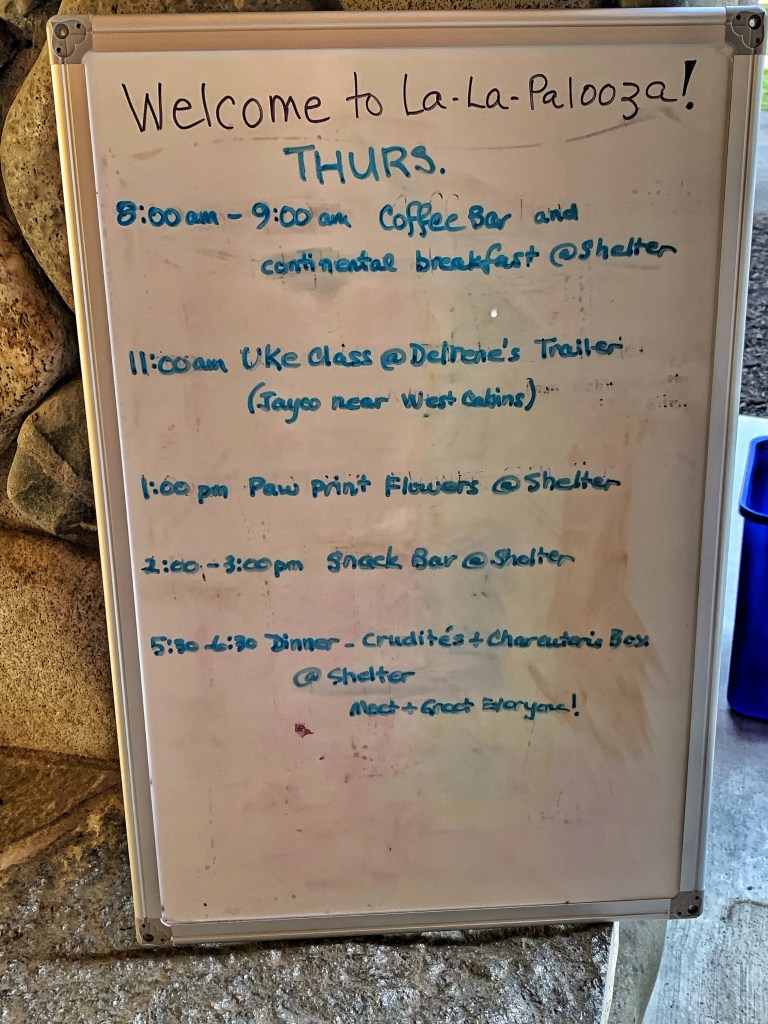 Welcome to La-La-Palooza!
THURS.
8:00 am - 9:00 am Coffee Bar and
continental breakfast @ Shelter
11:00 am Uke Class @ Trailer
(Jayco near West Cabins)
1:00 pm Paw Print Flowers @ Shelter
2:00 - 3:00 pm Snack Bar @ Shelter
5:30 - 6:30 Dinner - Crudités + Box
@ Shelter
Meet + Greet Everyone!